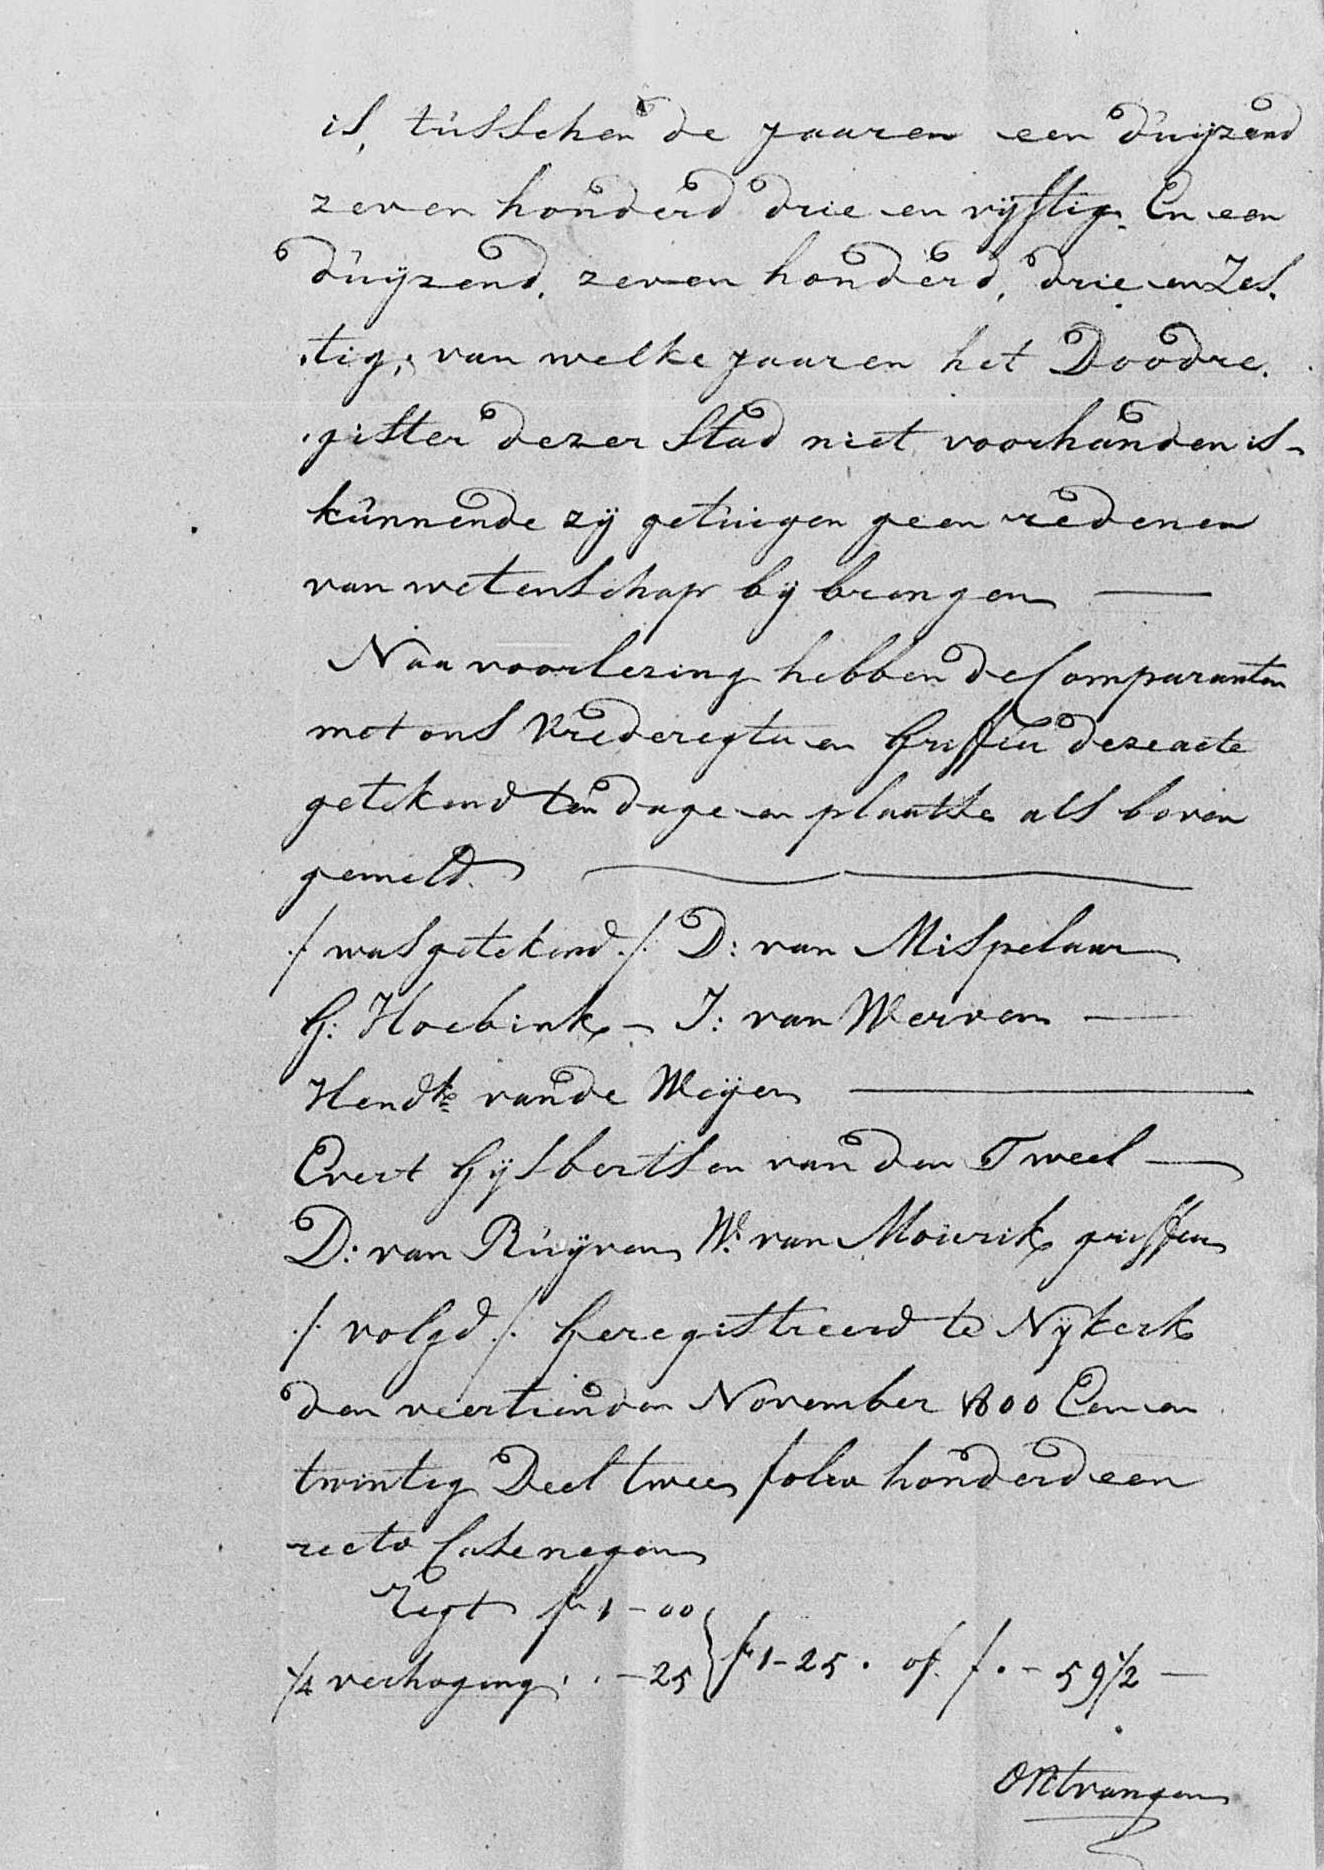 is, tusschen de jaaren een duijzend
zeven honderd drie en vijftig. En een
duijzend, zeven honderd, drie en Zes.
.tig, van welke jaaren het Doodre.
.gister dezer Stad niet voorhanden is -
kunnende zij getuigen geen redenen
van wetenschap bij brengen —
Naa voorlezing hebben de Comparanten
met ons Vrederegter en Griffier deze acte
getekend ten dage en plaatse als boven
gemeld. —
/. was getekend ./. D: van Mispelaar
G: Hoebink - J: van Werven —
Hendk van de Weijer —
Evert Gijsbertsen van den Tweel —
D: van Ruijven W: van Mourik griffier
/. volgd /. Geregistreerd te Nijkerk
den veertienden November 1800 Een en
twintig Deel twee folio honderd een
recto Case negen
Regt fr 1 - 00
1/4 verhoging . . - 25 } fr 1 - 25 . of f . - 59 1/2 —
Ontvangen